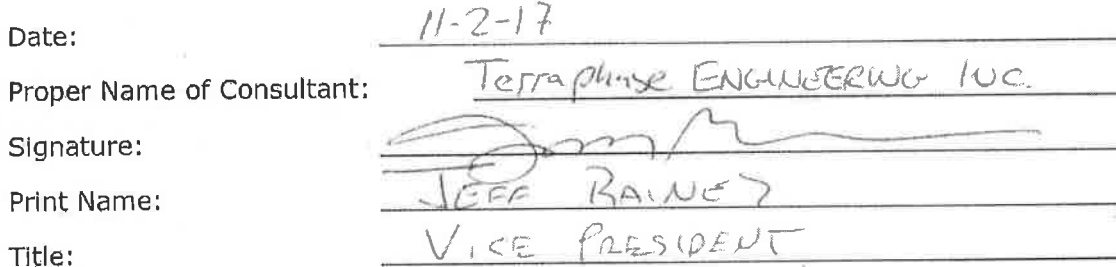 Date: 11-2-17
Proper Name of Consultant: Terraphase ENGINEERING INC.
Signature:
Print Name: JEFF RAINEY
Title: VICE PRESIDENT